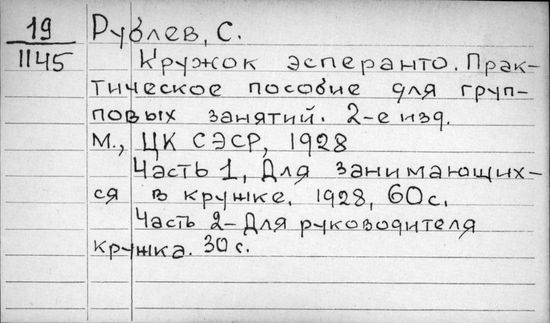 19
1145
Рублев, С.
Кружок эсперанто. Прак-
тическое пособие для груп-
повых занятий. 2-е изд.
М., ЦК СЭСР, 1928
Часть 1, Для занимающих-
ся в кружке. 1928, 60с.
Часть 2- Для руководителя
кружка. 30с.